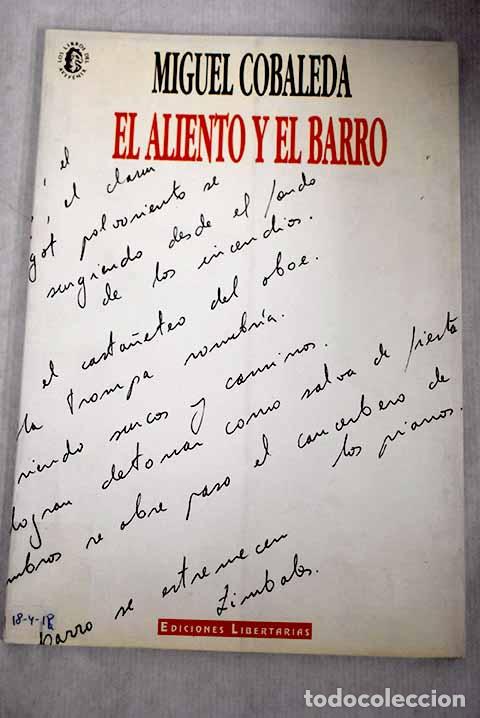 LOS LIBROS DEL
MIGUEL COBALEDA
EL ALIENTO Y EL BARRO
, el
, el clarín
got polvoriento se
surgiendo desde el fondo
de los incendios.
el castañeteo del oboe.
la trompa sombría.
riendo surcos y caminos.
logran detonar como salva de fiesta
mbros se abre paso el cancerbero de
los pianos.
barro se estremecen
Zimbales.
18-4-18
EDICIONES LIBERTARIAS
todocoleccion